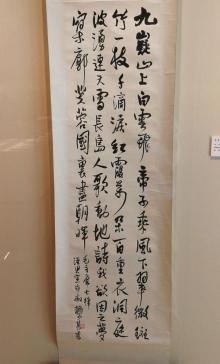 九嶷山上白雲飛帝子乘風下翠微斑
竹一枝千滴淚紅霞萬朵百重衣洞庭
波湧連天雪長島人歌動地詩我欲因之夢
寥廓芙蓉國裏盡朝暉
毛主席七律